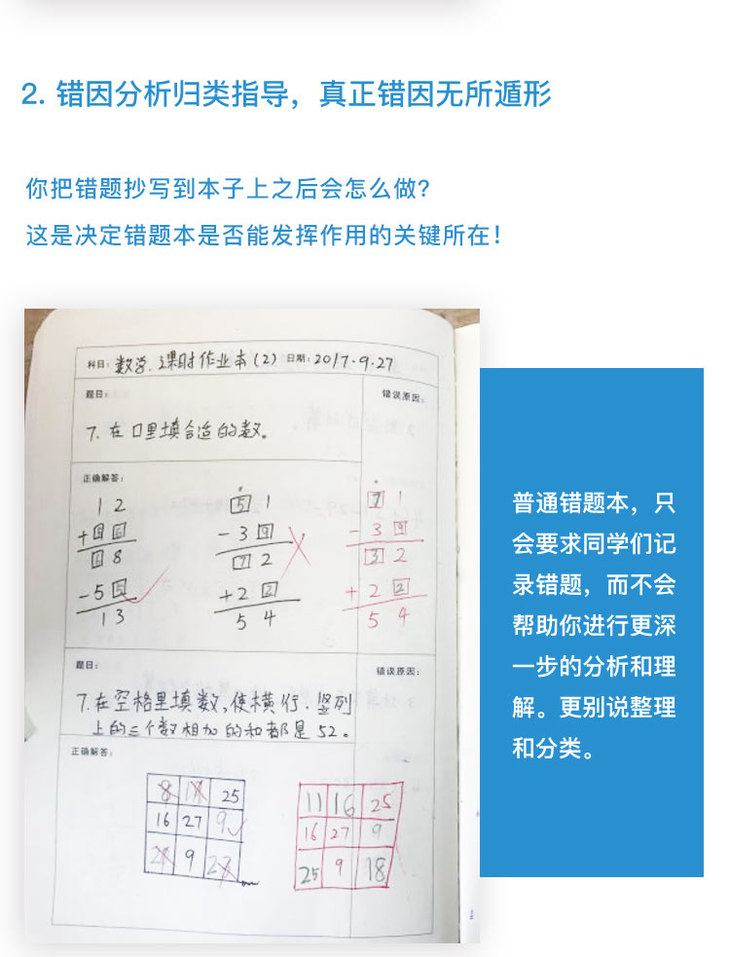 2. 错因分析归类指导，真正错因无所遁形
你把错题抄写到本子上之后会怎么做？
这是决定错题本是否能发挥作用的关键所在！
科目：数学.课时作业本(2) 日期：2017.9.27
题目：
错误原因：
7. 在口里填合适的数。
正确解答：
12
8
13
5 1
- 3 9
7 2
+ 2 2
5 4
7 1
- 3 9
3 2
+ 2 2
5 4
题目：
错误原因：
7. 在空格里填数，使横行.竖列
上的三个数相加的和都是52。
正确解答：
8 25
16 27 9
9
11 16 25
16 27 9
25 9 18
普通错题本，只
会要求同学们记
录错题，而不会
帮助你进行更深
一步的分析和理
解。更别说整理
和分类。